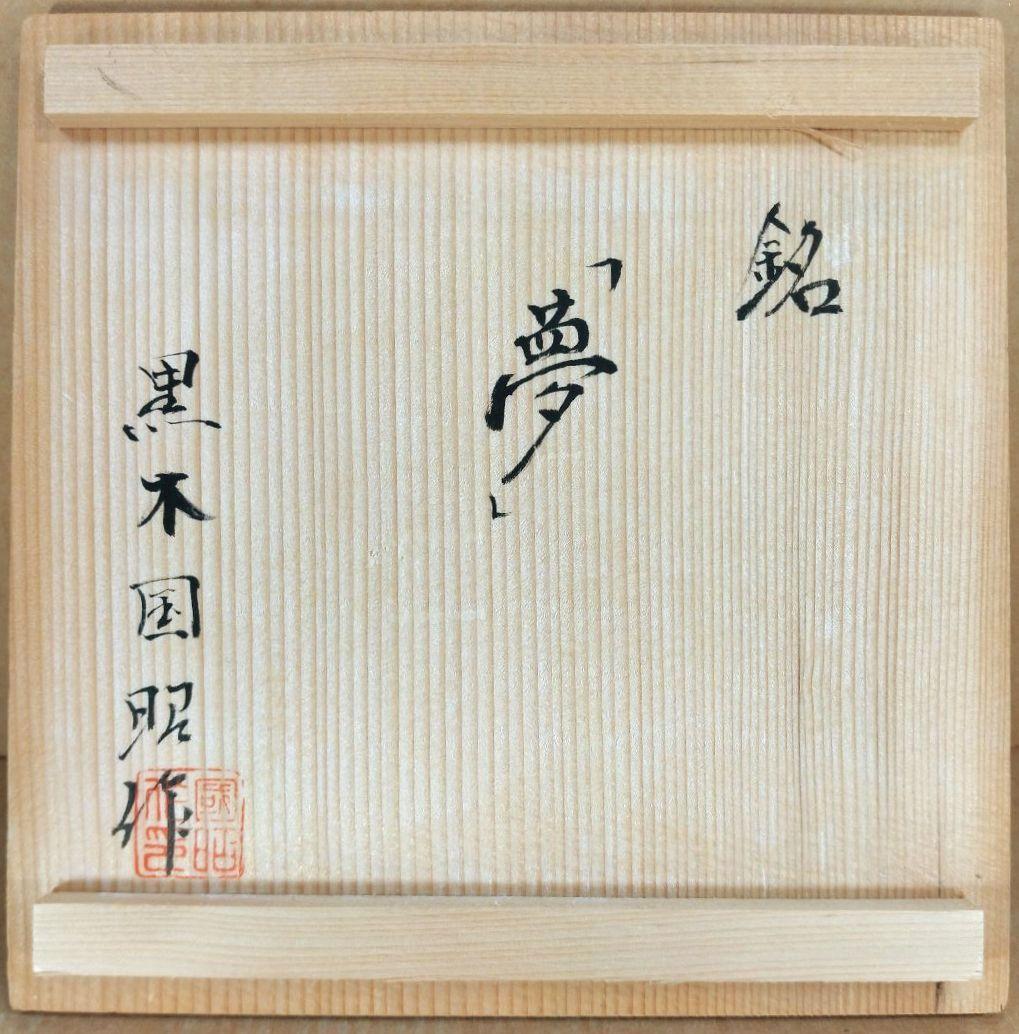 銘
「夢」
黒木国昭作